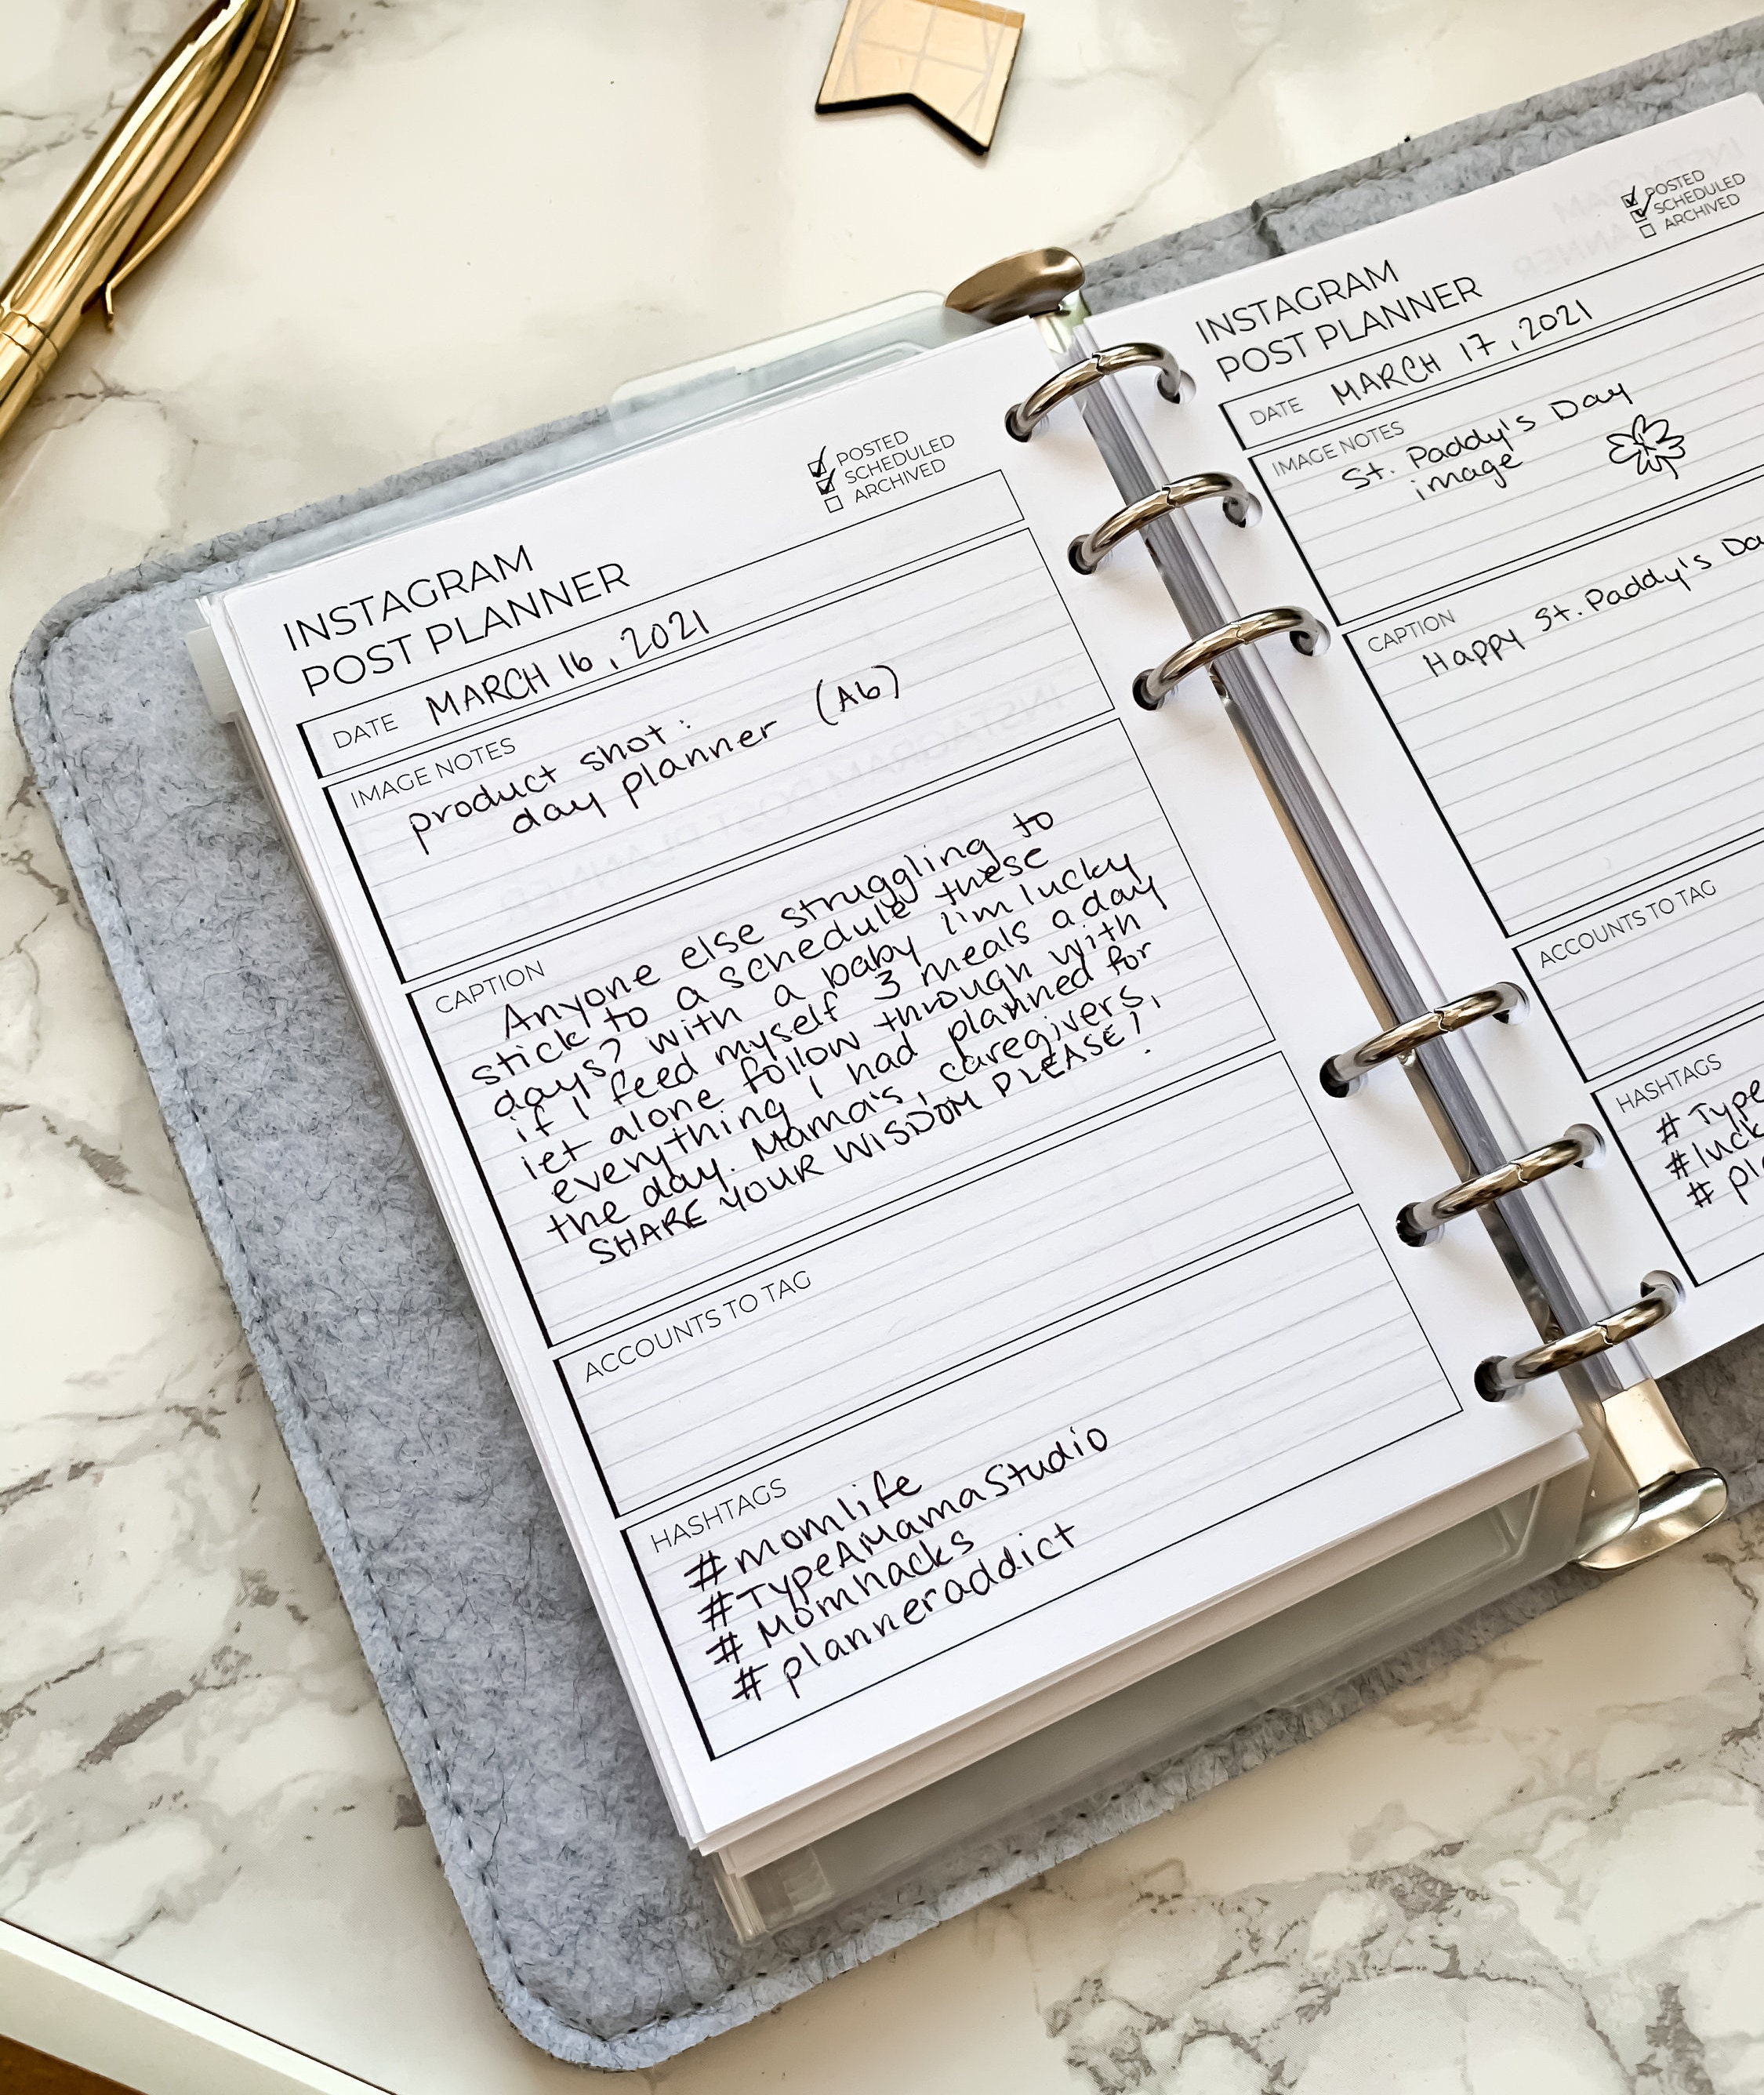 INSTAGRAM
POST PLANNER
POSTED
SCHEDULED
ARCHIVED
DATE MARCH 16, 2021
IMAGE NOTES
product shot:
day planner (A6)
CAPTION
Anyone else struggling to
stick to a schedule these
days? with a baby I'm lucky
if I feed myself 3 meals a day
let alone follow through with
everything I had planned for
the day. Mama's, caregivers,
SHARE YOUR WISDOM PLEASE!
ACCOUNTS TO TAG
HASHTAGS
#momlife
#TypeAMamaStudio
# Momhacks
# planneraddict
INSTAGRAM
POST PLANNER
POSTED
SCHEDULED
ARCHIVED
DATE MARCH 17, 2021
IMAGE NOTES
St. Paddy's Day
image
CAPTION
Happy St. Paddy's
ACCOUNTS TO TAG
HASHTAGS
# Type
#luck
# pl